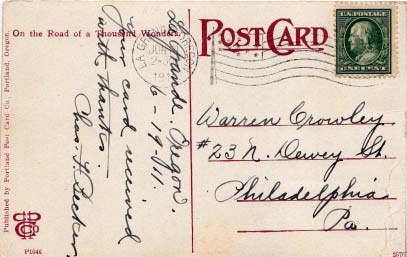 On the Road of a Thousand Wonders
POST CARD
U.S. POSTAGE
ONE CENT
LA GRANDE
La Grande, Oregon.
6-19-'11
Your card received
with thanks
Chas. F. Becker
Warren Crowley
#23 N. Dewey St.
Philadelphia
Pa.
Published by Portland Post Card Co., Portland, Oregon.
P1646